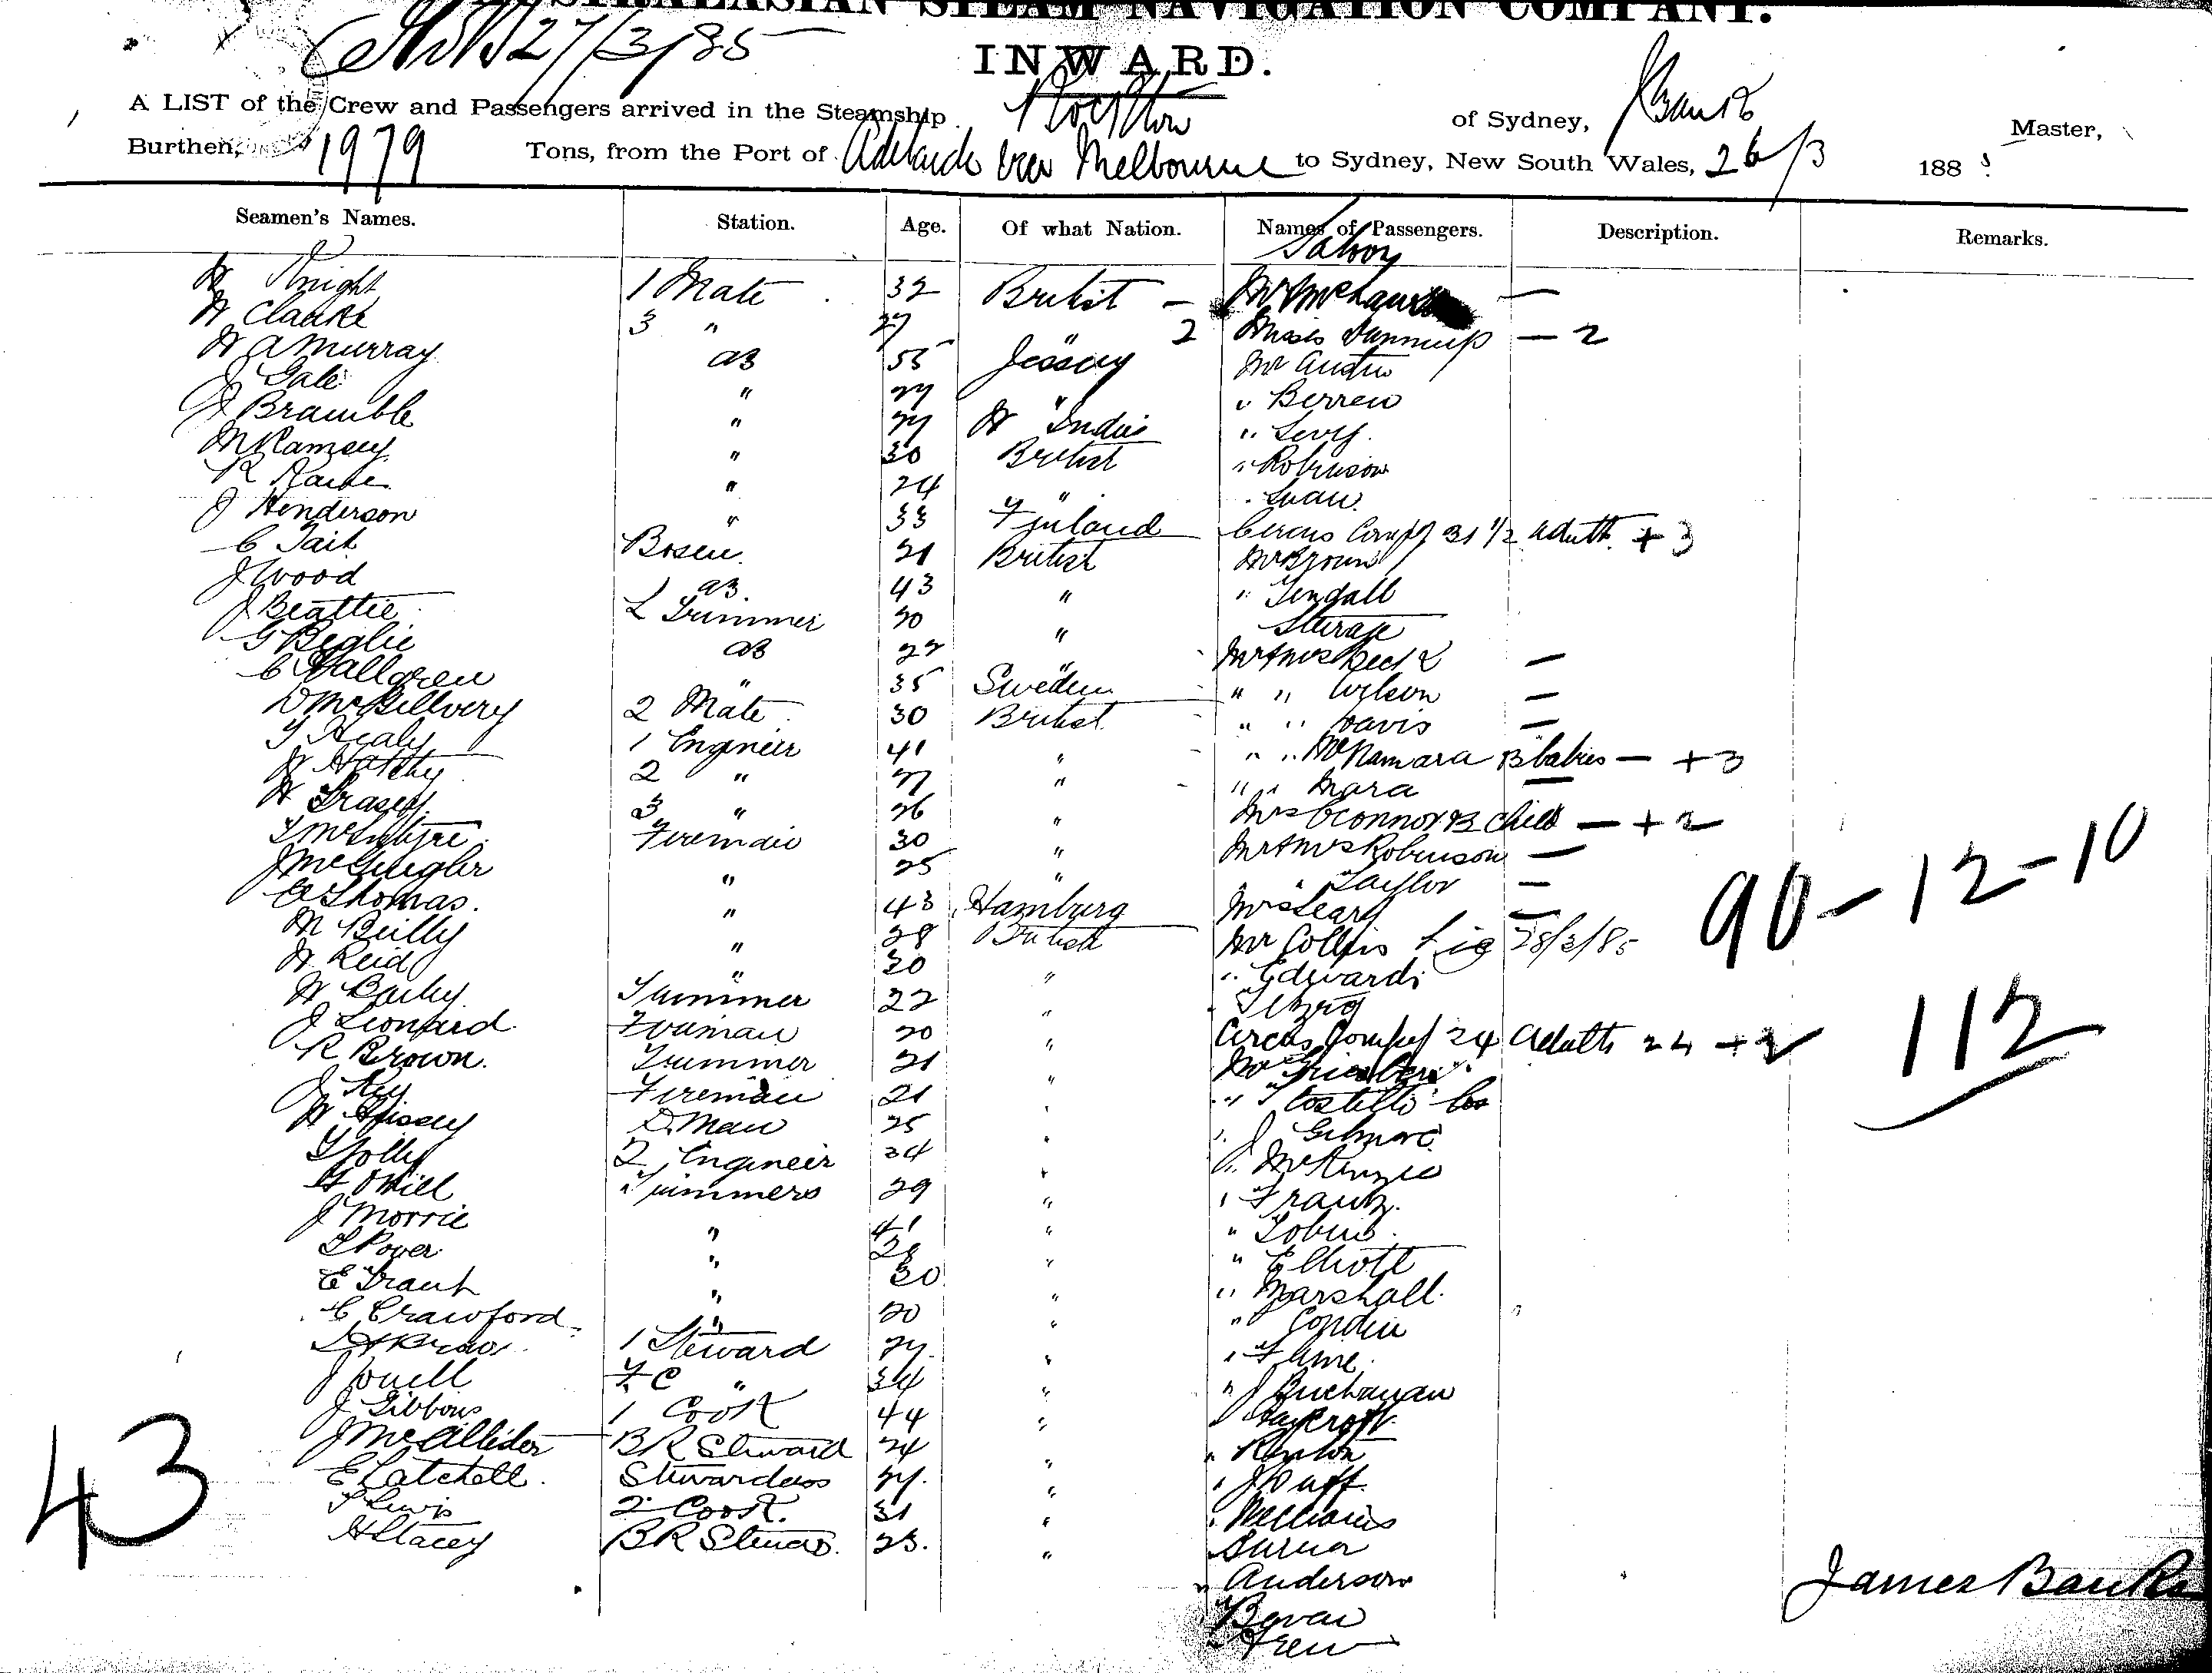 STEAM NAVIGATION COMPANY.
27/3/85
INWARD.
A LIST of the Crew and Passengers arrived in the Steamship of Sydney, J Banks Master,
Burthen, 1979 Tons, from the Port of Adelaide via Melbourne to Sydney, New South Wales, 26/3 188
Seamen's Names. Station. Age. Of what Nation. Names of Passengers. Description. Remarks.
Saloon
Knight 1 Mate 32 British —
W Clarke 3 " 27 " 2 Misses — 2
W A Murray AB 55 Mr Austin
J Gale " 27 " " Berren
J Bramble " 27 W Indies " Levy.
M Ramsey " 30 British " Robinson
R " 24 " "
J Henderson " 33 Finland Circus Compy 31 1/2 adults + 3
C Tait Bosun 21 British Mr Brown
J Wood AB. 43 " " Tindall
J Beattie L Trimmer 20 " Steerage
G Beglie AB 22 " Mr & Mrs Beck 2 —
C Hallgren " 35 Sweden " " Wilson —
D McGillvery 2 Mate 30 British " " Davis —
T Healy 1 Engineer 41 " " " McNamara 3 babies — + 3
W Hatchy 2 " 27 " " " Mara —
W Fraser 3 " 26 " Mrs OConnor & child — + 2
T McIntyre Fireman 30 " Mr & Mrs Robinson —
J McGuigler " 25 " " Taylor —
A Thomas. " 43 Hamburg Mrs Leary —
M Reilly " 28 British Mr Collins 28/3/85
W Reid " 30 " " Edwards
W Trimmer 22 "
J Leonard Fireman 20 " Circus Compy 24 Adults 24 + 2
R Brown. Trimmer 21 " Mr
J Fireman 21 " " Costello
W D. Man 25 " " J Gilmore
T Jolly 2 Engineer 34 " " McKenzie
Trimmers 29 " " Frantz.
J Morris " 41 " " Tobin
" 28 " " Elliott
E Grant " 30 " " Marshall
C Crawford " 20 " " Condin
1 Steward 27 " "
J F C " 34 " " J Buchanan
J Gibbons 1 Cook 44 " " Haycroft
J McAllister B R Steward 24 " " Renton
E Latchell Stewardess 27. " " J Duff.
Lewis 2 Cook. 31 " " Williams
H Stacey BR Steward. 23. " Turner
" Anderson
Bevan
90-12-10
112
43
James Banks